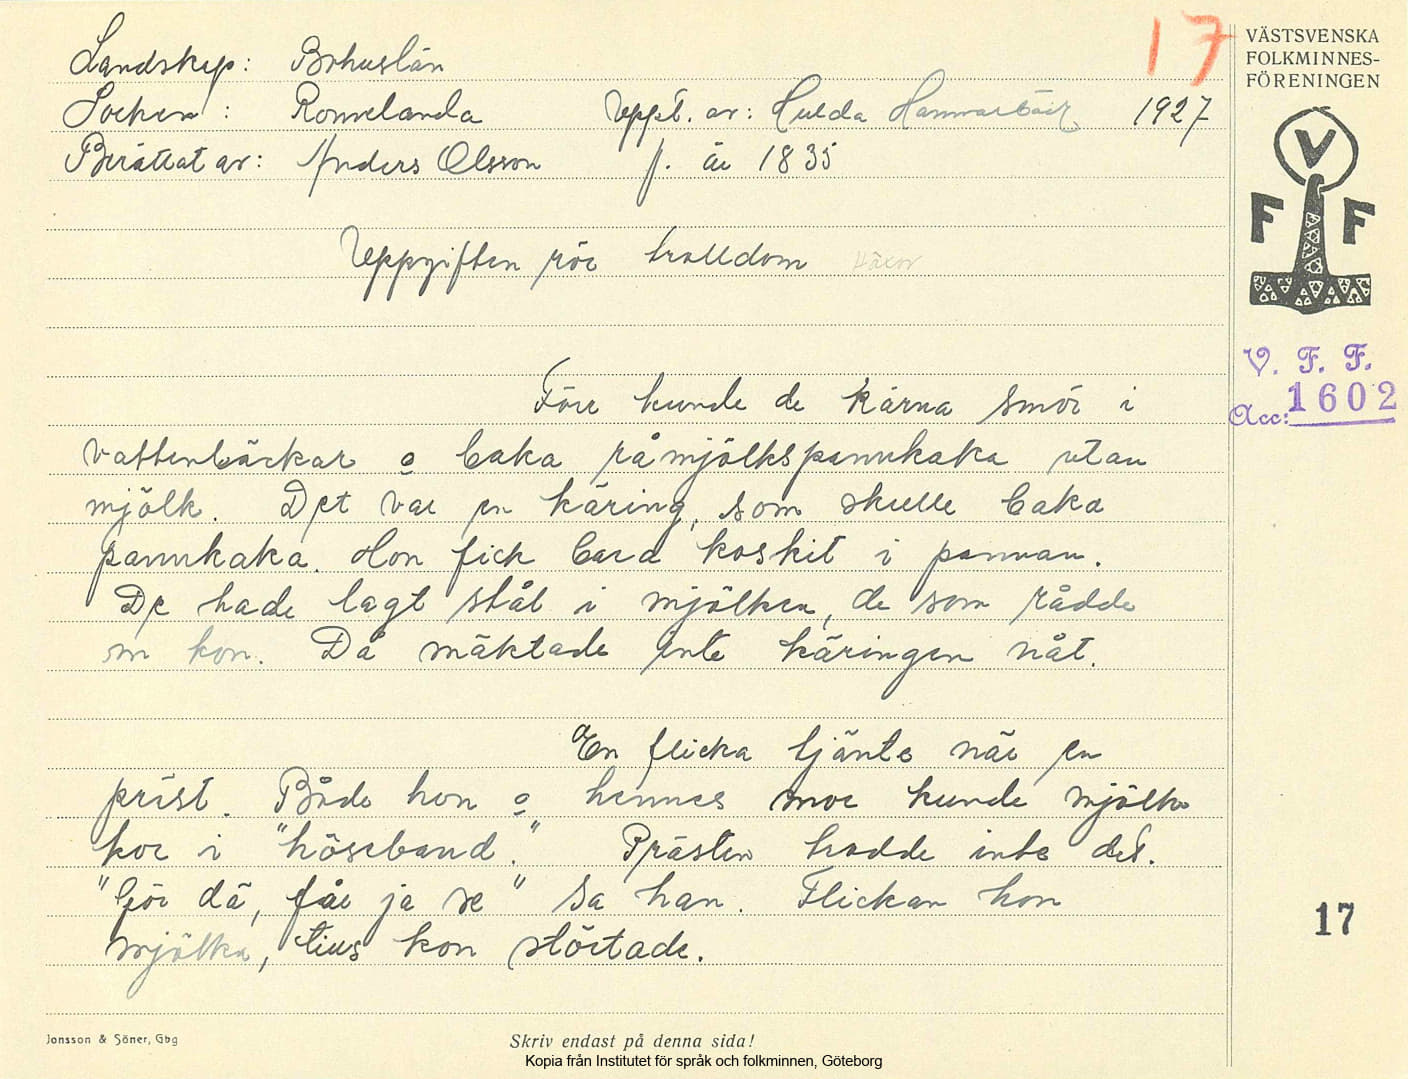 17
VÄSTSVENSKA
FOLKMINNES-
FÖRENINGEN
Landskap: Bohuslän
Socken: Romelanda Uppt. av: Hulda Hammarbäck 1927
Berättat av: Anders Olsson f. år 1835
V
F F
Uppgiften rör trolldom Häxor
V. F. F.
Acc: 1602
Före kunde de kärna smör i
vattenbäckar o baka råmjölkspannkaka utan
mjölk. Det var en käring, som skulle baka
pannkaka. Hon fick bara koskit i pannan.
De hade lagt stål i mjölken, de som rådde
om kon. Då mäktade inte käringen nåt.
En flicka tjänte när en
präst. Både hon o hennes mor kunde mjölka
kor i "höseband." Prästen trodde inte det.
"Gör dä, får ja se" sa han. Flickan hon
mjölka, tius kon störtade.
17
Jonsson & Söner, Gbg
Skriv endast på denna sida!
Kopia från Institutet för språk och folkminnen, Göteborg